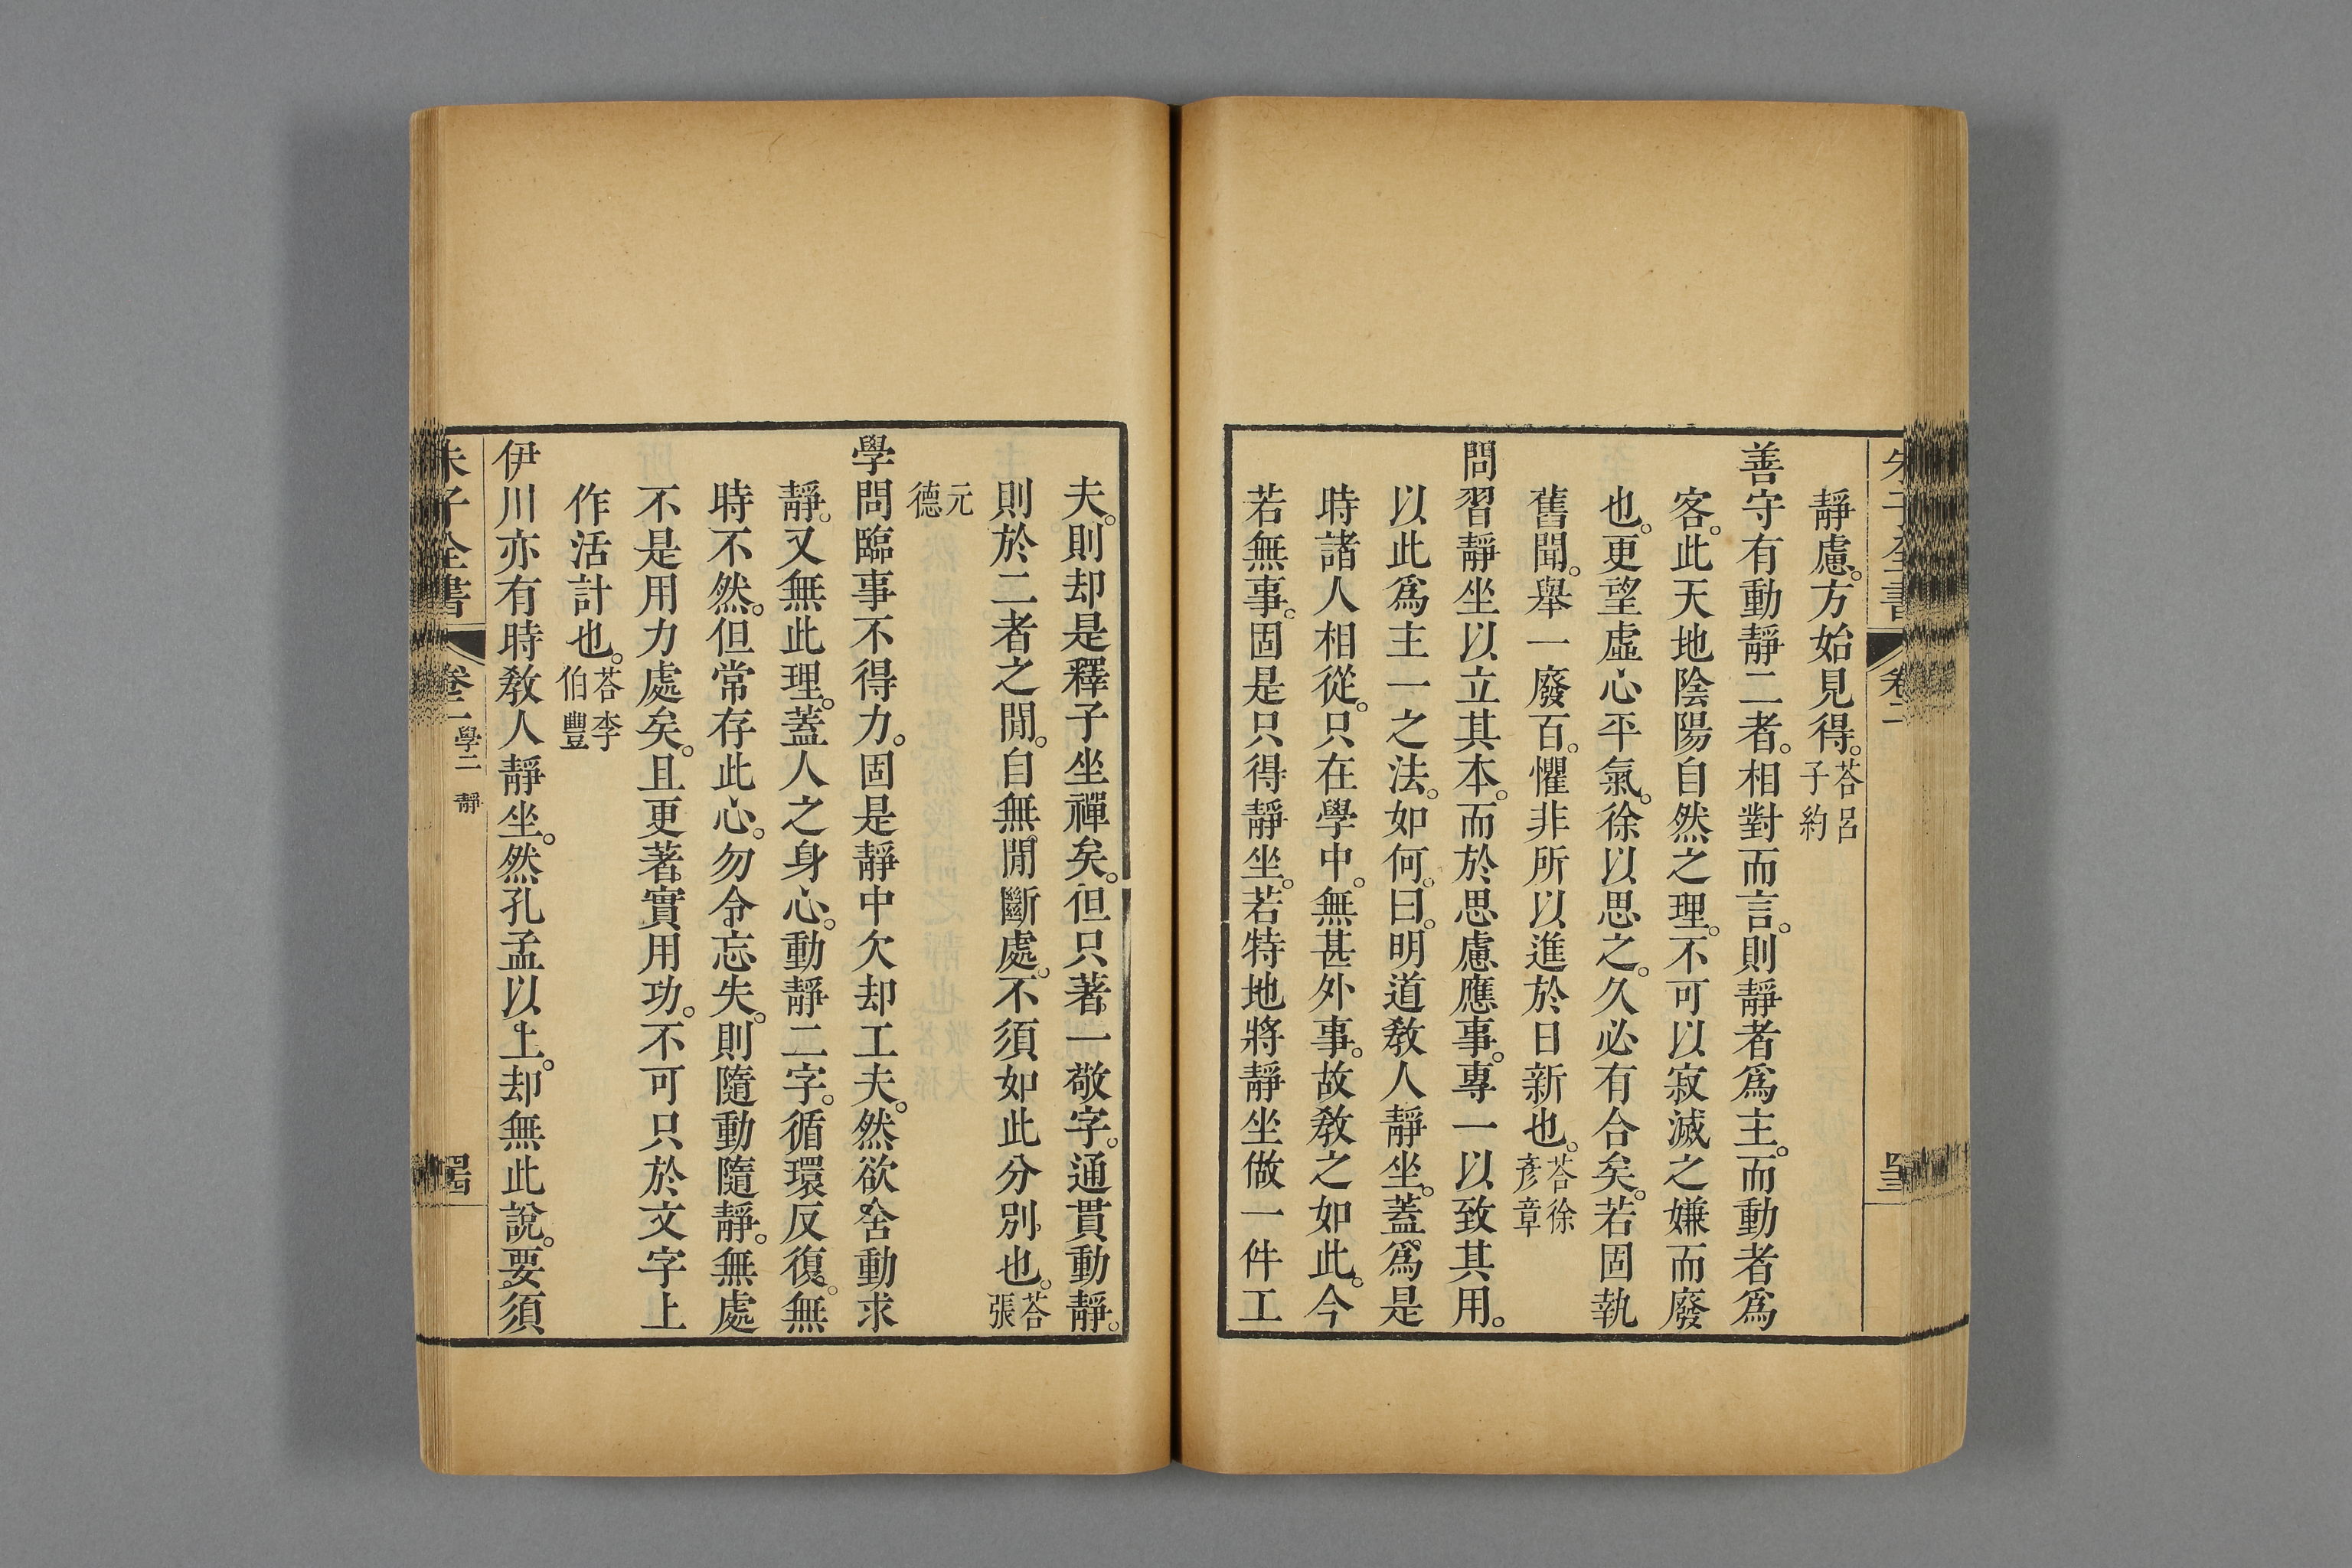 朱子全書
卷二
靜慮。方始見得。荅呂子約
善守有動靜二者。相對而言。則靜者爲主。而動者爲
客。此天地陰陽自然之理。不可以寂滅之嫌而廢
也。更望虛心平氣。徐以思之。久必有合矣。若固執
舊聞。舉一廢百。懼非所以進於日新也。荅徐彥章
問習靜坐以立其本。而於思慮應事。專一以致其用。
以此爲主一之法。如何。曰。明道敎人靜坐。蓋爲是
時諸人相從。只在學中。無甚外事。故敎之如此。今
若無事。固是只得靜坐。若特地將靜坐做一件工
夫。則却是釋子坐禪矣。但只著一敬字。通貫動靜。
則於二者之閒。自無閒斷處。不須如此分別也。荅張
元德
學問臨事不得力。固是靜中欠却工夫。然欲舍動求
靜。又無此理。蓋人之身心。動靜二字。循環反復。無
時不然。但常存此心。勿令忘失。則隨動隨靜。無處
不是用力處矣。且更著實用功。不可只於文字上
作活計也。荅李伯豐
伊川亦有時敎人靜坐。然孔孟以上。却無此說。要須
朱子全書
卷二
學二 靜